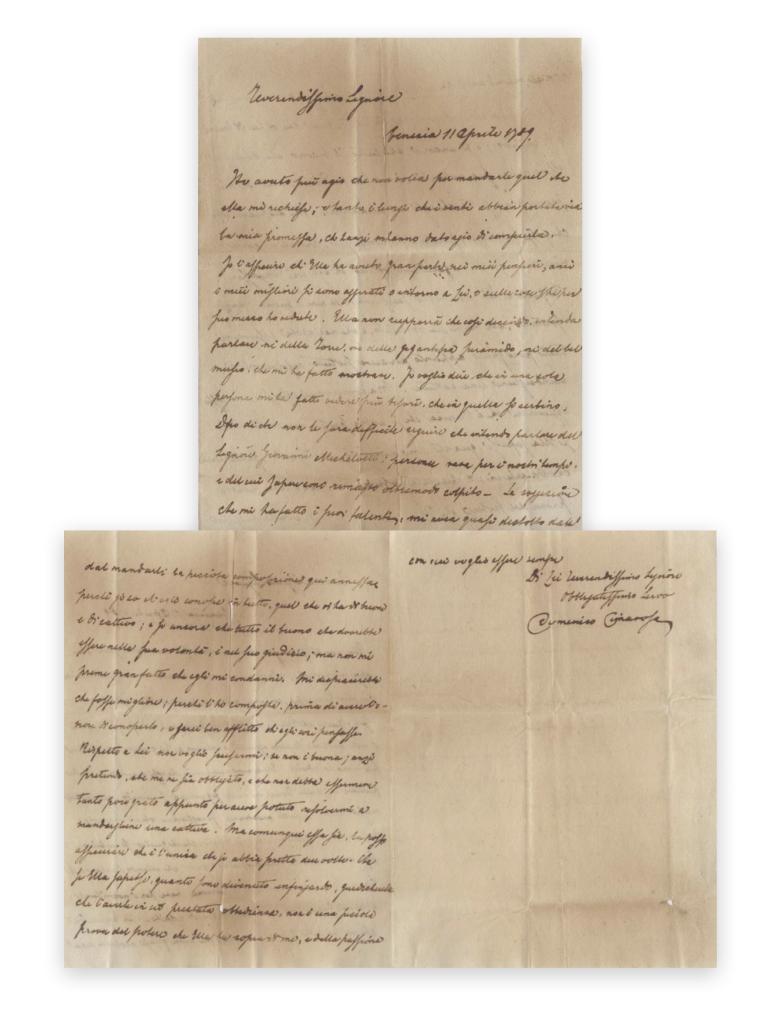 Reverendissimo Signore
Venezia 11 Aprile 1789.
Ho avuto più agio che non volea per mandarle quel che
ella mi richiese; e tanto è lungi che i venti abbian portata via
la mia promessa, ch'anzi m'anno dato agio di compierla.
Io l'assicuro ch'Ella ha avuto gran parte ne' miei pensieri, anzi
i miei migliori si sono aggirati o intorno a Lei, o sulle cose che per
suo mezzo ho vedute. Ella non supporrà che così dicendo, intenda
parlare nè della Torre, nè della piramide, nè del bel
museo, che mi ha fatto mostrare. Io voglio dire, che in una sola
persona mi ha fatto vedere più tesori, che in quella si serbino.
Dopo di che non le sarà difficile capire che intendo parlare del
Signore Giovanni persona rara per i nostri tempi,
e del cui sapere sono rimasto oltremodo colpito. La
che mi ha fatto i suoi talenti, mi avea quasi distolto dal
dal mandarle la picciola composizione qui annessa
perchè io so ch'esso conosce in tutto, quel che vi ha di buono
e di cattivo; e so ancora che tutto il buono che dovrebbe
essere nella sua volontà, è nel suo giudizio; ma non mi
preme gran fatto che egli mi condanni. Mi dispiacerebbe
che fosse migliore; perchè l'ho composta, prima di avere l'o-
nore di conoscerlo, e sarei ben afflitto di egli così pensasse.
Rispetto a Lei non voglio scusarmi; se non è buona; anzi
pretendo, che me ne sia obbligato, e che non debba essermene
tanto poco grato appunto per aver potuto risolvermi a
mandargliene una cattiva. Ma comunque essa sia, le posso
assicurare che è l'unica che io abbia fatta due volte. Che
se Ella sapesse, quanto sono divenuto infingardo,
che l'averle in ciò prestata obbedienza, non è una picciola
prova del potere che Ella ha sopra di me, e della passione
con cui voglio essere sempre
Di Lei Reverendissimo Signore
Obbligatissimo Servo
Domenico Cimarosa